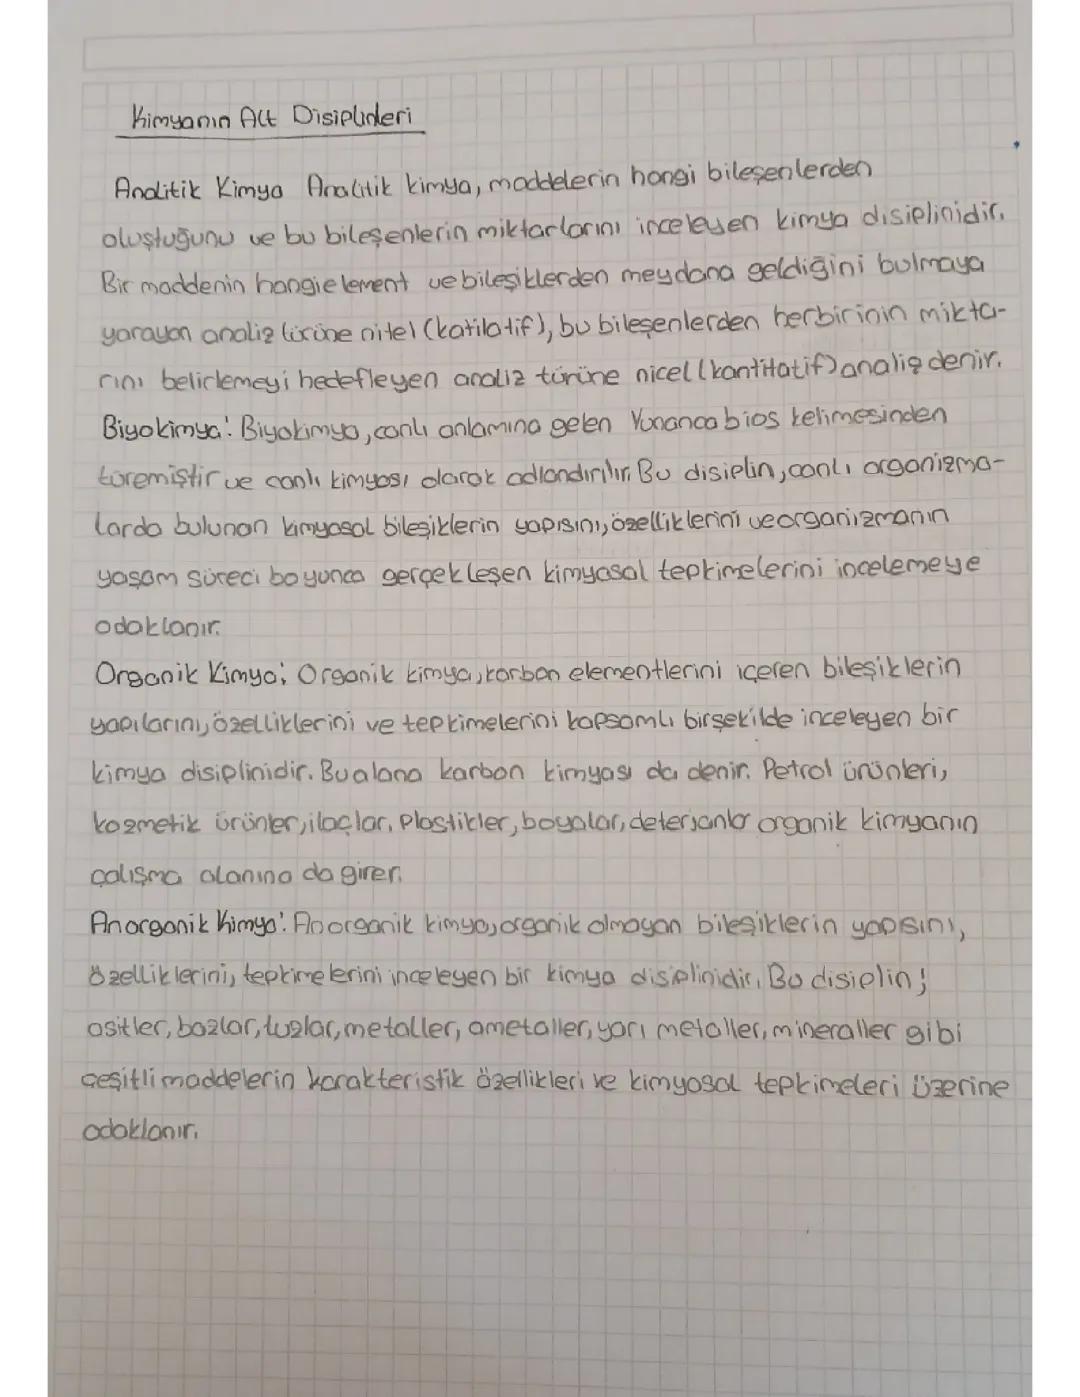 Kimyanın Alt Disiplinleri
Analitik Kimya Analitik kimya, maddelerin hangi bileşenlerden
oluştuğunu ve bu bileşenlerin miktarlarını inceleyen kimya disiplinidir.
Bir maddenin hangi element ve bileşiklerden meydana geldiğini bulmaya
yarayan analiz türüne nitel (katilatif), bu bileşenlerden herbirinin mikta-
rını belirlemeyi hedefleyen analiz türüne nicel (kantitatif) analiz denir.
Biyokimya: Biyokimya, canlı anlamına gelen Yunanca bios kelimesinden
türemiştir ve canlı kimyası olarak adlandırılır. Bu disiplin, canlı organizma-
larda bulunan kimyasal bileşiklerin yapısını, özelliklerini ve organizmanın
yaşam süreci boyunca gerçekleşen kimyasal tepkimelerini incelemeye
odaklanır.
Organik Kimya: Organik kimya, karbon elementlerini içeren bileşiklerin
yapılarını, özelliklerini ve tepkimelerini kapsamlı birşekilde inceleyen bir
kimya disiplinidir. Bu alana karbon kimyası da denir. Petrol ürünleri,
kozmetik ürünler, ilaçlar, plastikler, boyalar, deterjanlar organik kimyanın
çalışma alanına da girer.
Anorganik Kimya: Anorganik kimya, organik olmayan bileşiklerin yapısını,
özelliklerini, tepkimelerini inceleyen bir kimya disiplinidir. Bu disiplin;
asitler, bazlar, tuzlar, metaller, ametaller, yarı metaller, mineraller gibi
çeşitli maddelerin karakteristik özellikleri ve kimyasal tepkimeleri üzerine
odaklanır.